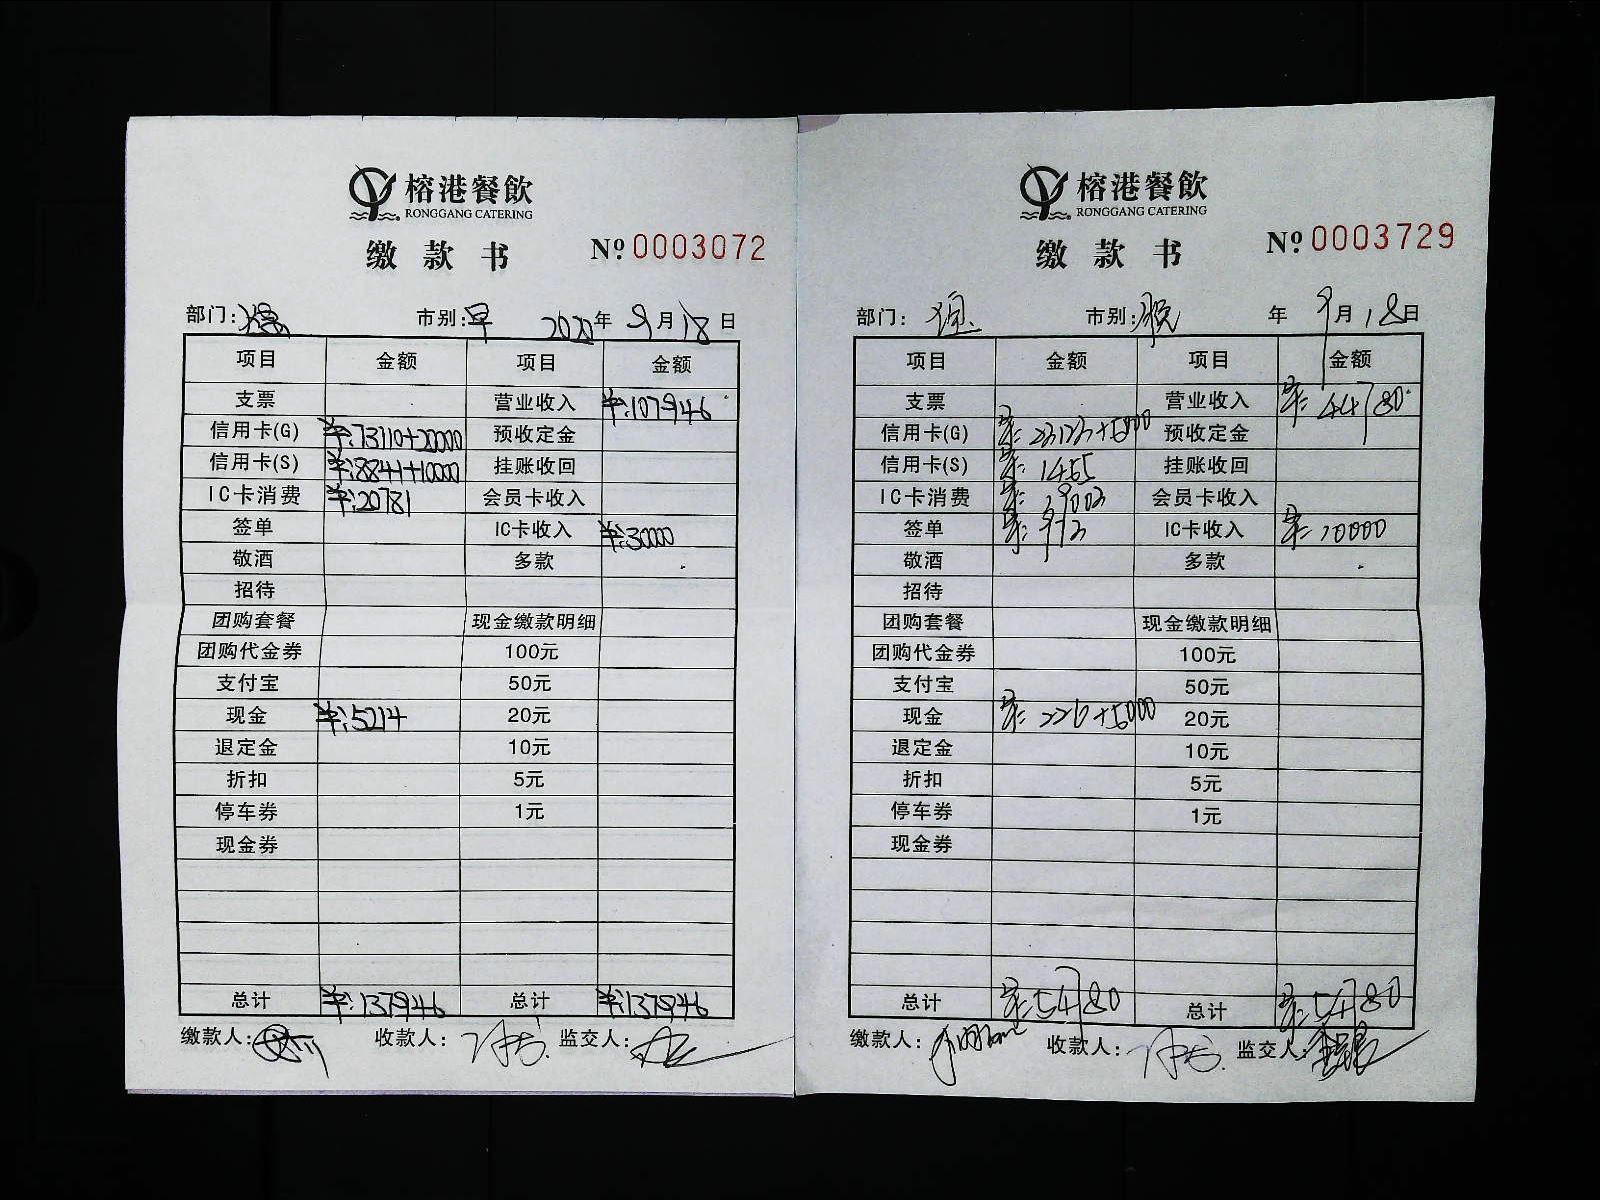 榕港餐飲
RONGGANG CATERING
缴款书 Nº 0003072
部门: 市别:早 2020年 9月18日
项目 金额 项目 金额
支票 营业收入 ¥:107946
信用卡(G) ¥:73110+20000 预收定金
信用卡(S) ¥:8841+10000 挂账收回
IC卡消费 ¥:20781 会员卡收入
签单 IC卡收入 ¥:30000
敬酒 多款
招待
团购套餐 现金缴款明细
团购代金券 100元
支付宝 50元
现金 ¥:5214 20元
退定金 10元
折扣 5元
停车券 1元
现金券
总计 ¥:137946 总计 ¥:137946
缴款人: 收款人: 监交人:
榕港餐飲
RONGGANG CATERING
缴款书 Nº 0003729
部门: 市别:晚 年 9月18日
项目 金额 项目 金额
支票 营业收入 ¥:44780
信用卡(G) ¥:23123+5000 预收定金
信用卡(S) ¥:1455 挂账收回
IC卡消费 ¥:19003 会员卡收入
签单 ¥:973 IC卡收入 ¥:10000
敬酒 多款
招待
团购套餐 现金缴款明细
团购代金券 100元
支付宝 50元
现金 ¥:226+5000 20元
退定金 10元
折扣 5元
停车券 1元
现金券
总计 ¥:54780 总计 ¥:54780
缴款人: 收款人: 监交人: